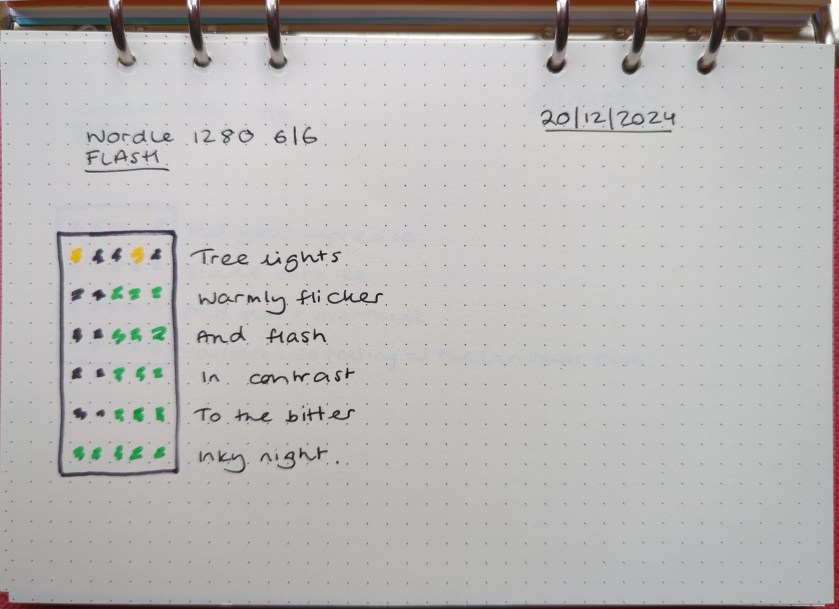 Wordle 1280 6/6
FLASH
20/12/2024
Tree lights
Warmly flicker
And flash
In contrast
To the bitter
Inky night.